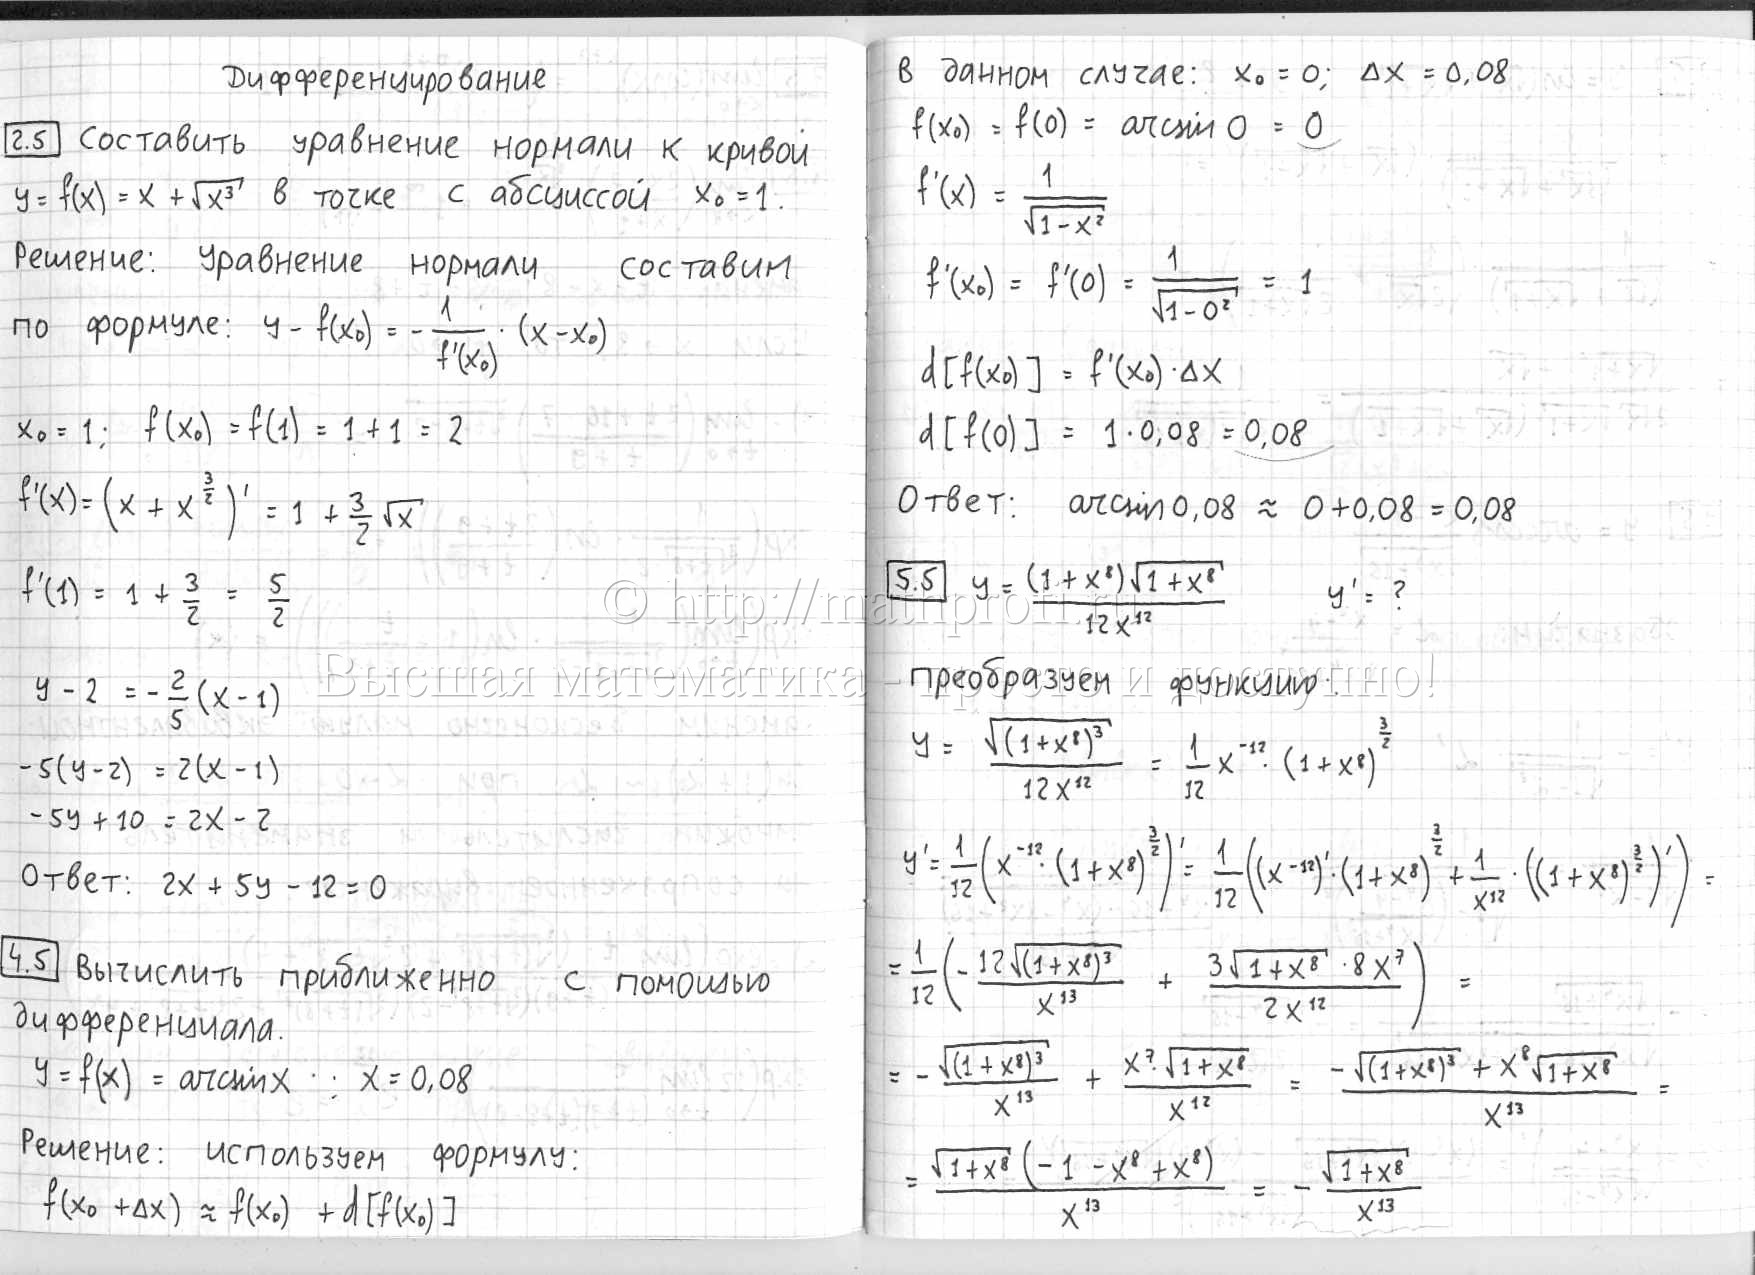 Дифференцирование
2.5 Составить уравнение нормали к кривой
y = f(x) = x + √x³ в точке с абсциссой x₀ = 1.
Решение: Уравнение нормали составим
по формуле: y - f(x₀) = - 1/f'(x₀) · (x - x₀)
x₀ = 1; f(x₀) = f(1) = 1 + 1 = 2
f'(x) = (x + x^(3/2))' = 1 + 3/2 √x
f'(1) = 1 + 3/2 = 5/2
y - 2 = - 2/5 (x - 1)
-5(y - 2) = 2(x - 1)
-5y + 10 = 2x - 2
Ответ: 2x + 5y - 12 = 0
4.5 Вычислить приближенно с помощью
дифференциала.
y = f(x) = arcsin x ; x = 0,08
Решение: используем формулу:
f(x₀ + Δx) ≈ f(x₀) + d[f(x₀)]
В данном случае: x₀ = 0; Δx = 0,08
f(x₀) = f(0) = arcsin 0 = 0
f'(x) = 1/√(1 - x²)
f'(x₀) = f'(0) = 1/√(1 - 0²) = 1
d[f(x₀)] = f'(x₀) · Δx
d[f(0)] = 1 · 0,08 = 0,08
Ответ: arcsin 0,08 ≈ 0 + 0,08 = 0,08
5.5 y = (1 + x⁸)√(1 + x⁸) / 12x¹² y' = ?
преобразуем функцию:
y = √((1 + x⁸)³) / 12x¹² = 1/12 x⁻¹² · (1 + x⁸)^(3/2)
y' = 1/12 (x⁻¹² · (1 + x⁸)^(3/2))' = 1/12 ((x⁻¹²)' · (1 + x⁸)^(3/2) + 1/x¹² · ((1 + x⁸)^(3/2))') =
= 1/12 (- 12√((1 + x⁸)³) / x¹³ + 3√(1 + x⁸) · 8x⁷ / 2x¹²) =
= - √((1 + x⁸)³) / x¹³ + x⁷ · √(1 + x⁸) / x¹² = (-√((1 + x⁸)³) + x⁸√(1 + x⁸)) / x¹³ =
= √(1 + x⁸) (-1 - x⁸ + x⁸) / x¹³ = - √(1 + x⁸) / x¹³
© http://mathprofi.ru
Высшая математика - просто и доступно!